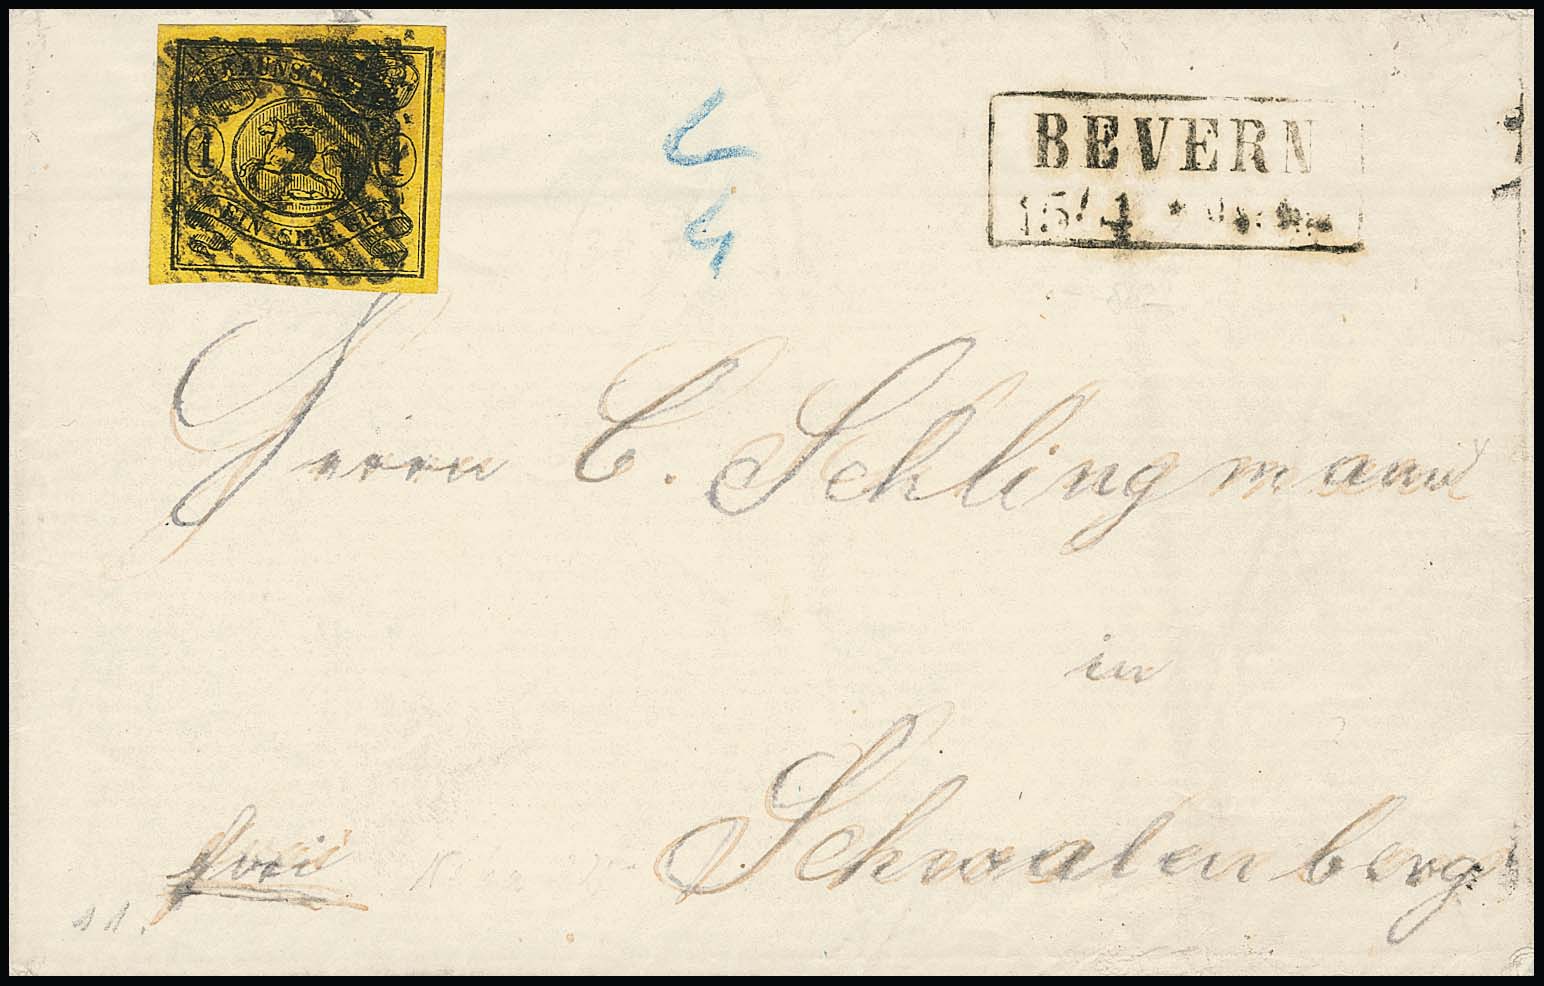 BRAUNSCHWEIG
1
EIN SILB. GR.
BEVERN
15/4 *
Herrn C. Schlingmann
in
Schwalenberg
frei